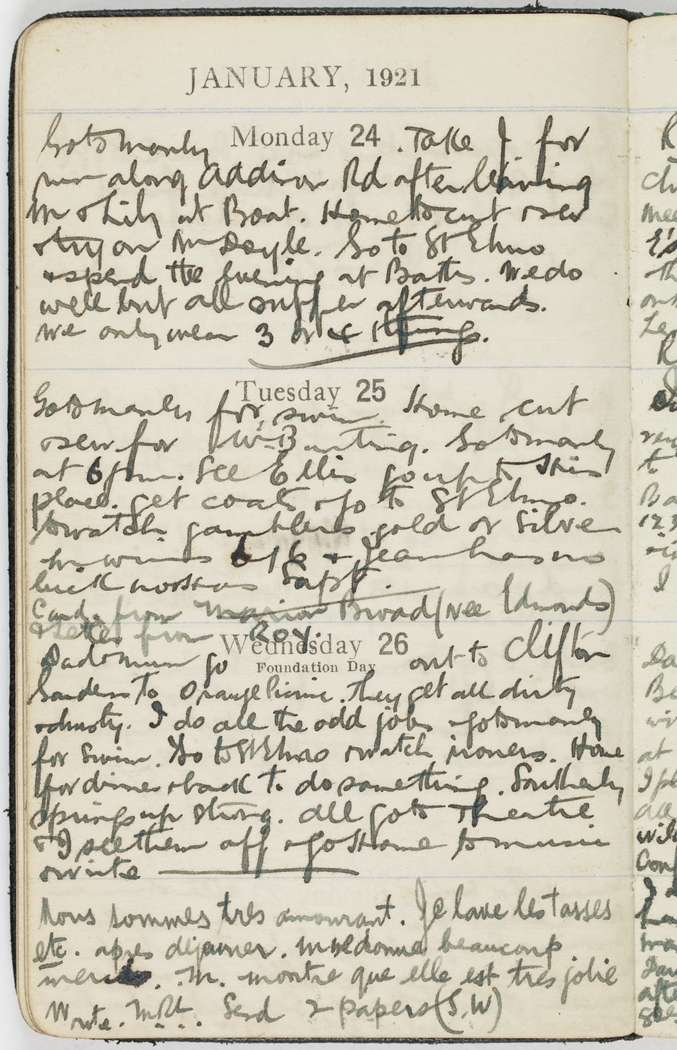 JANUARY, 1921
Go to Manly Monday 24. Take J for
run along Addison Rd after leaving
M & Lily at Boat. Home to cut & sew
& try on Mr Doyle. Go to St Elmo
& spend the evening at Batts. We do
well but all suffer afterwards.
We only wear 3 or 4 things.
Tuesday 25
Go to Manly for swim. Home cut
& sew for Bunting. Go to Manly
at 6 pm. See Ellis go up to
place. get coats & go to St Elmo.
& watch gamblers gold or silver
wins 6/6 & Jean has no
luck
Card from Marion Broad (nee Edmonds)
& letter from Roy.
Wednesday 26
Foundation Day
Dad & Mum go out to Clifton
Gardens to Orange Picnic. They get all dirty
& dusty. I do all the odd jobs & go to Manly
for swim. Go to St Elmo & watch ironers. Home
for dinner & back to do something. Southerly
springs up strong. All go to Theatre
& I see them off & go Home to music
& write
Nous sommes très amourant. Je lave les tasses
etc. après dejauner. M me donne beaucoup
mercis. M. montre que elle est très jolie
Write. Send 2 papers (S, W)